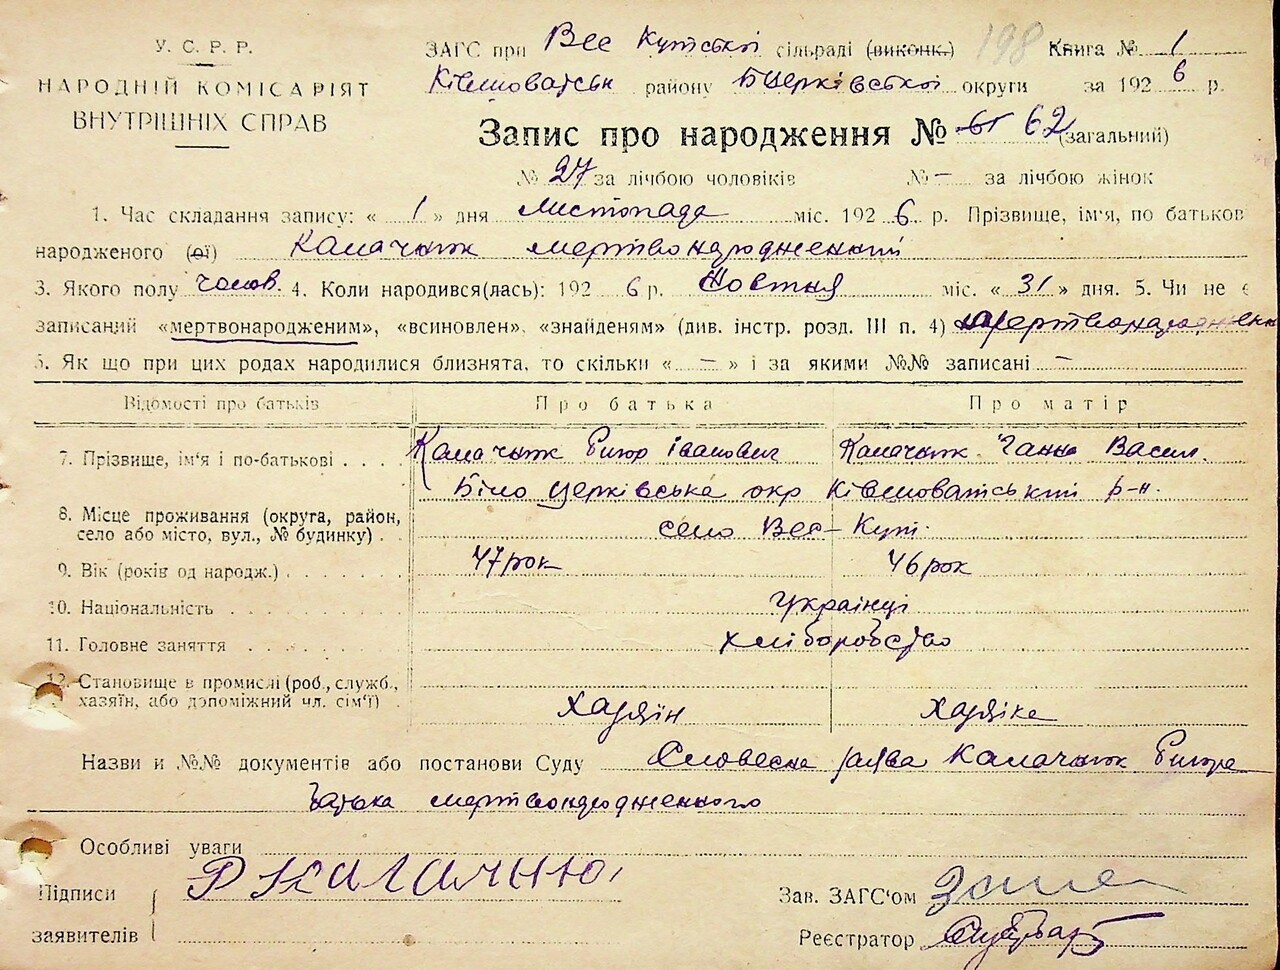 У. С. Р. Р.
НАРОДНІЙ КОМІСАРІЯТ
ВНУТРІШНІХ СПРАВ
ЗАГС при Вес Кутській сільраді (виконк.) 198 Книга № 1
Ківшоватськ району Бцерківської округи за 1926 р.
Запис про народження № 61 62 (загальний)
№ 27 за лічбою чоловіків № – за лічбою жінок
1. Час складання запису: « 1 » дня листопада міс. 1926 р. Прізвище, ім'я, по батьков
народженого (ої) Калачник мертвонародженний
3. Якого полу чолов. 4. Коли народився(лась): 1926 р. Жовтня міс. « 31 » дня. 5. Чи не є
записаний «мертвонародженим», «всиновлен», «знайденям» (див. інстр. розд. III п. 4)
6. Як що при цих родах народилися близнята, то скільки « – » і за якими №№ записані –
Відомості про батьків Про батька Про матір
7. Прізвище, ім'я і по-батькові Калачник Григор Іванович Калачник Ганна Васил.
Біло церківська окр Ківшоватський р-н.
8. Місце проживання (округа, район,
село або місто, вул., № будинку) село Вес-Кут.
9. Вік (років од народж.) 47 рок 46 рок
10. Національність Українці
11. Головне заняття хліборобство
12. Становище в промислі (роб., служб.,
хазяїн, або допоміжний чл. сім'ї) Хазяїн Хазяіка
Назви и №№ документів або постанови Суду Словесна заява Калачник Григора
батька мертвонародженного
Особливі уваги
Підписи
заявителів
Зав. ЗАГС'ом
Реєстратор